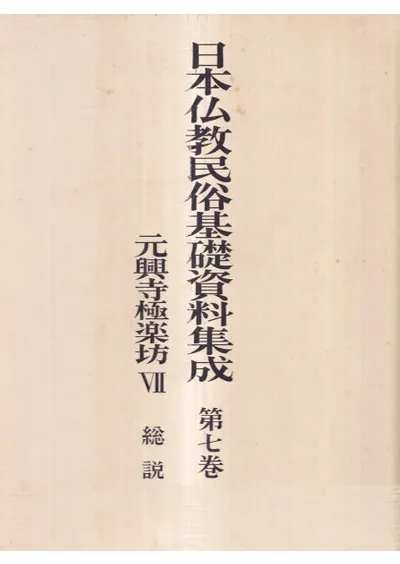 日本仏教民俗基礎資料集成 第七巻
元興寺極楽坊 Ⅶ 総説